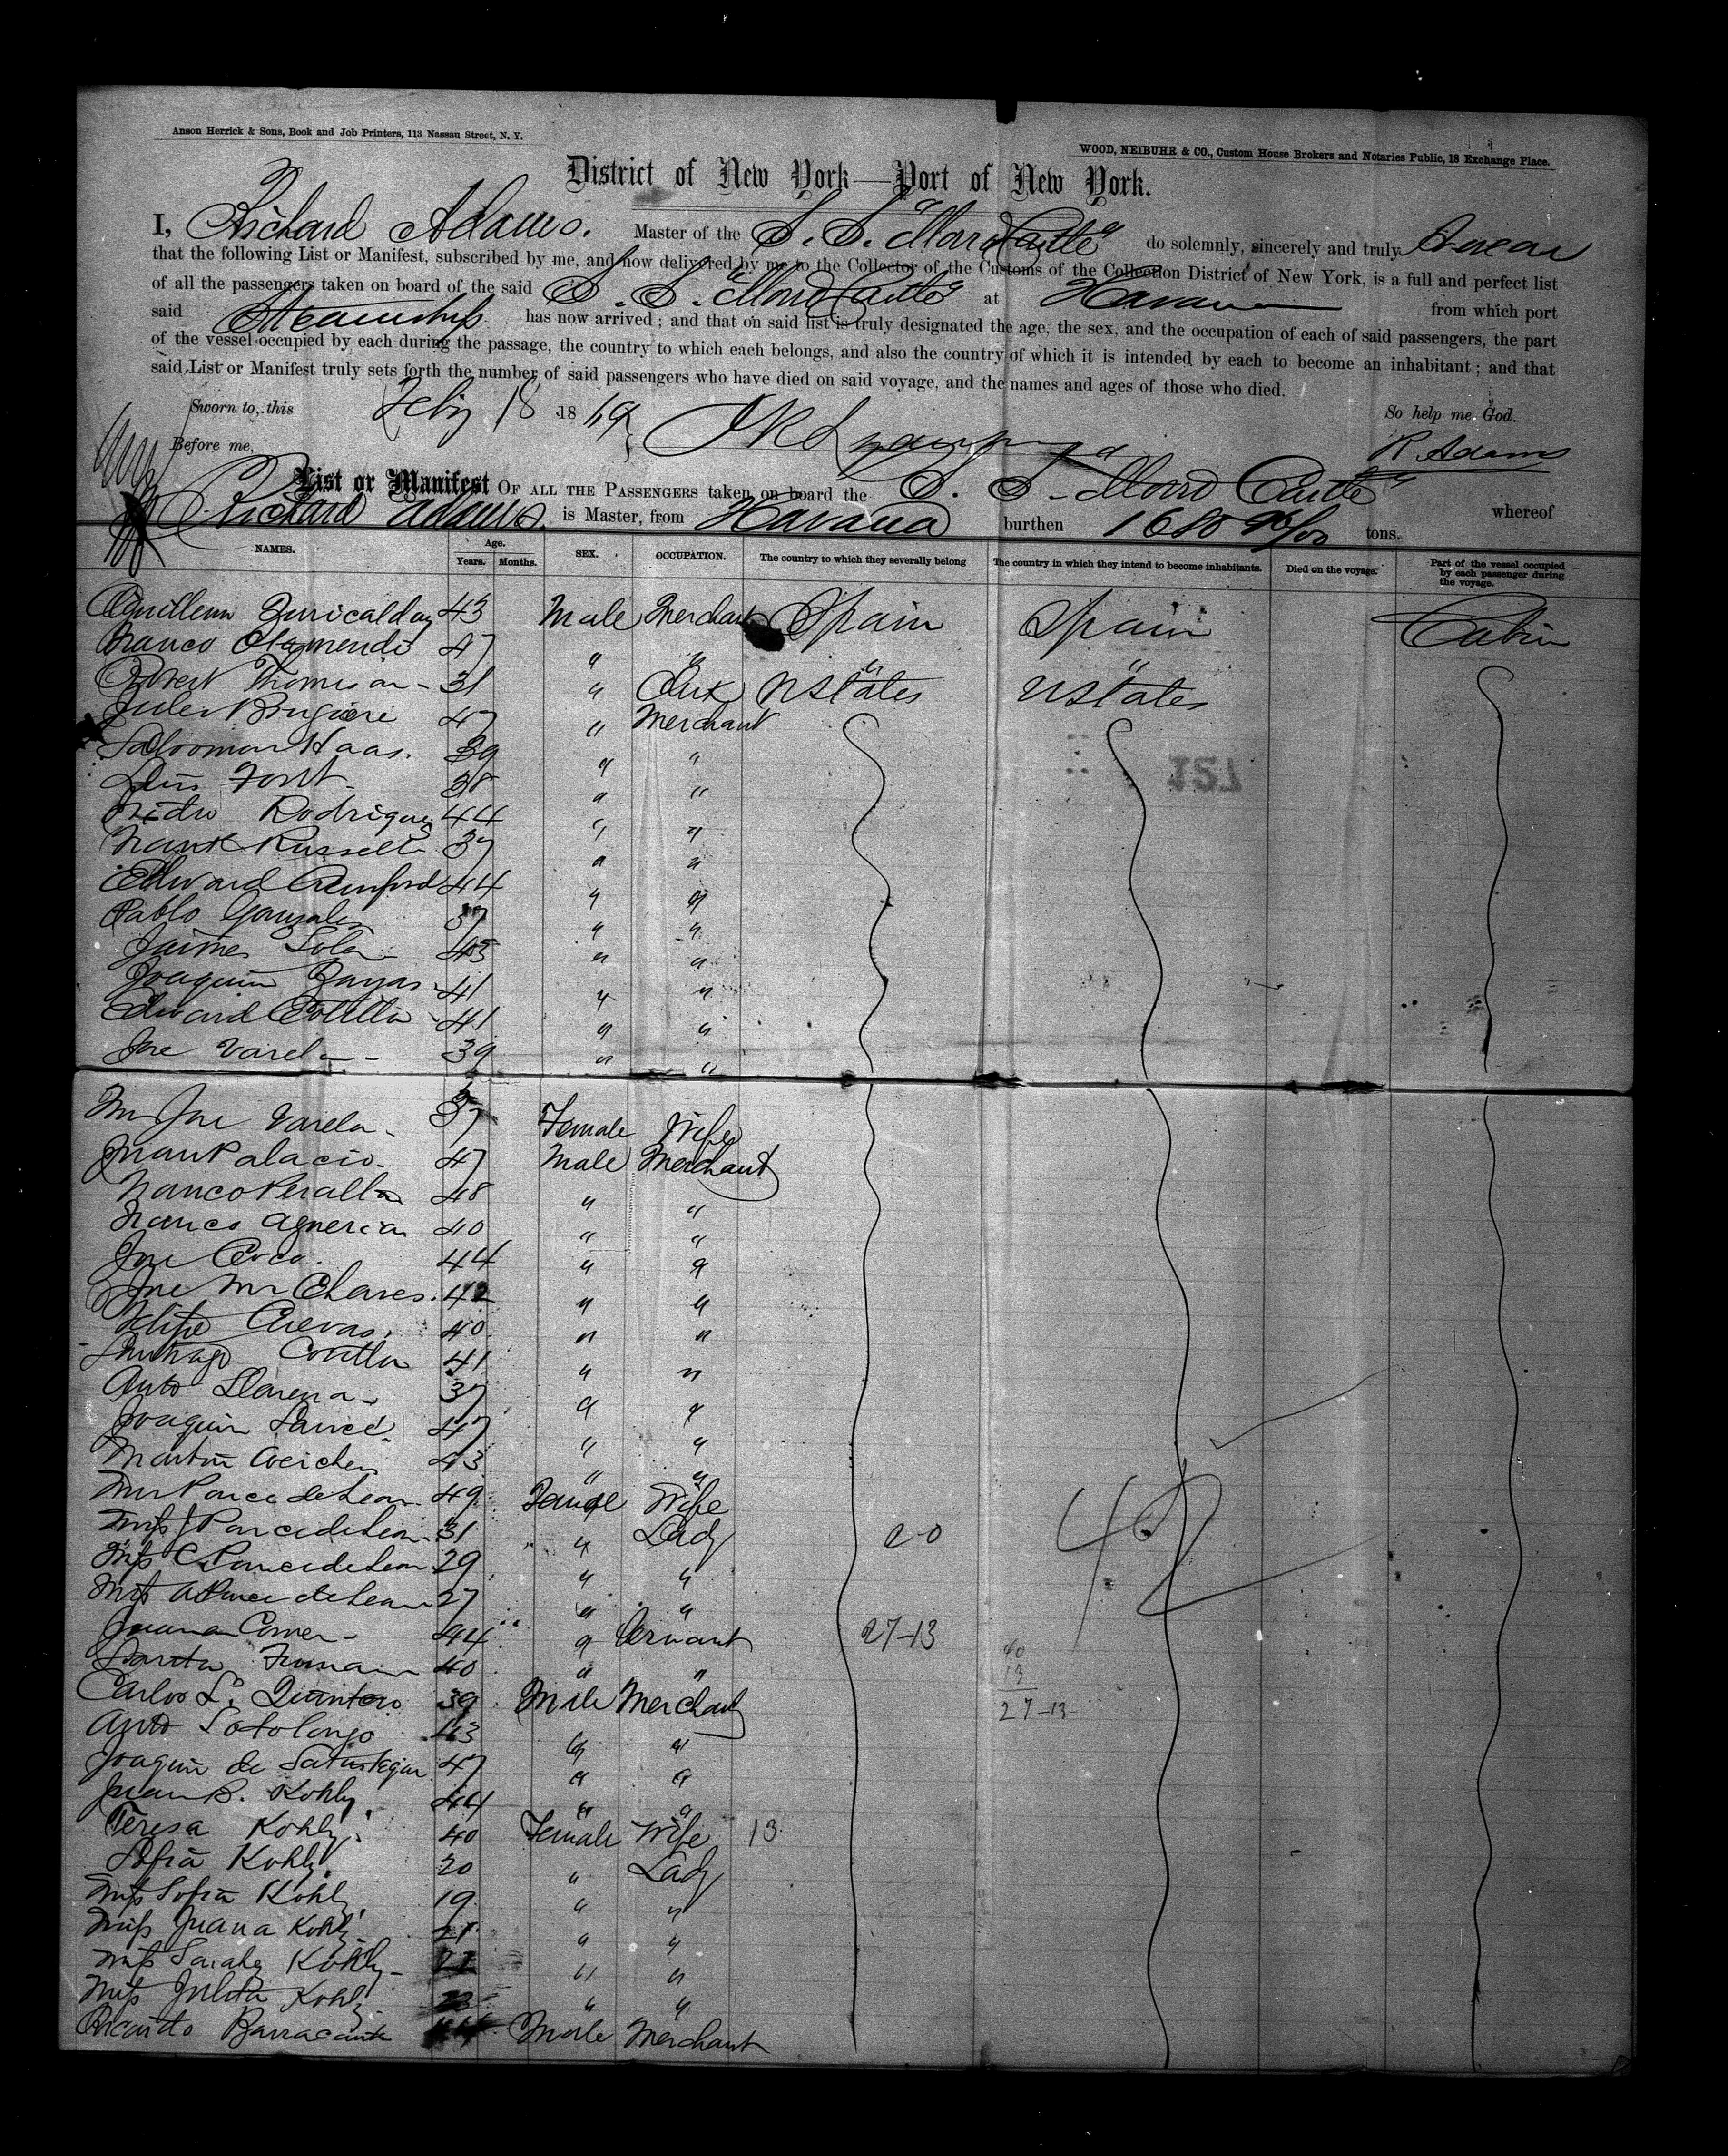 Anson Herrick & Sons, Book and Job Printers, 113 Nassau Street, N. Y.
WOOD, NEIBUHR & CO., Custom House Brokers and Notaries Public, 18 Exchange Place.
District of New York—Port of New York.
I, Richard Adams. Master of the S. S. "Morro Castle" do solemnly, sincerely and truly Swear
that the following List or Manifest, subscribed by me, and now delivered by me to the Collector of the Customs of the Collection District of New York, is a full and perfect list
of all the passengers taken on board of the said S. S. "Morro Castle" at Havana from which port
said Steamship has now arrived; and that on said list is truly designated the age, the sex, and the occupation of each of said passengers, the part
of the vessel occupied by each during the passage, the country to which each belongs, and also the country of which it is intended by each to become an inhabitant; and that
said List or Manifest truly sets forth the number of said passengers who have died on said voyage, and the names and ages of those who died.
Sworn to, this Feby 18 1869 So help me God.
Before me, R. Adams
List or Manifest OF ALL THE PASSENGERS taken on board the S. S. Morro Castle whereof
Richard Adams. is Master, from Havana burthen 1680 tons.
NAMES. Age. Years. Months. SEX. OCCUPATION. The country to which they severally belong The country in which they intend to become inhabitants. Died on the voyage. Part of the vessel occupied by each passenger during the voyage.
43 Male Merchant Spain Spain Cabin
Franco 47 " " " "
Robert Thomson 31 " Clerk UStates UStates
Jules Brugiere 47 " Merchant
Saloomon Haas. 39 " "
Luis Font 38 " "
Pedro Rodriguez 44 " "
Frank Russell 37 " "
Edward 44 " "
Pablo Gonzales 37 " "
Jaime Sola 45 " "
Joaquin Zayas 41 " "
Edward 41 " "
Jose Varela 39 " "
Mrs Jose Varela 37 Female Wife
Juan Palacio. 47 Male Merchant
Franco Peralta 48 " "
Franco 40 " "
Jose Coco. 44 " "
Jose Ma Chaves. 42 " "
Felipe Cuevas. 40 " "
Santiago 41 " "
Anto Llarena 37 " "
Joaquin 47 " "
Martin 43 " "
Mrs Ponce de Leon 49 Female Wife
Miss J Ponce de Leon 31 " Lady 20
Miss C Ponce de Leon 29 " "
Miss A Ponce de Leon 27 " "
Juana 44 " Servant 27-13
40 " " 40
13
Carlos L. Quintero 39 Male Merchant 27-13
Anto Sotolongo 43 " "
Joaquin de Satrustegui 47 " "
Juan B. Kohly 44 " "
Teresa Kohly 40 Female Wife 13
Sofia Kohly 20 " Lady
Miss Sofia Kohly 19 " "
Miss Juana Kohly 21 " "
Miss Kohly 22 " "
Miss Julita Kohly 23 " "
Ricardo Male Merchant